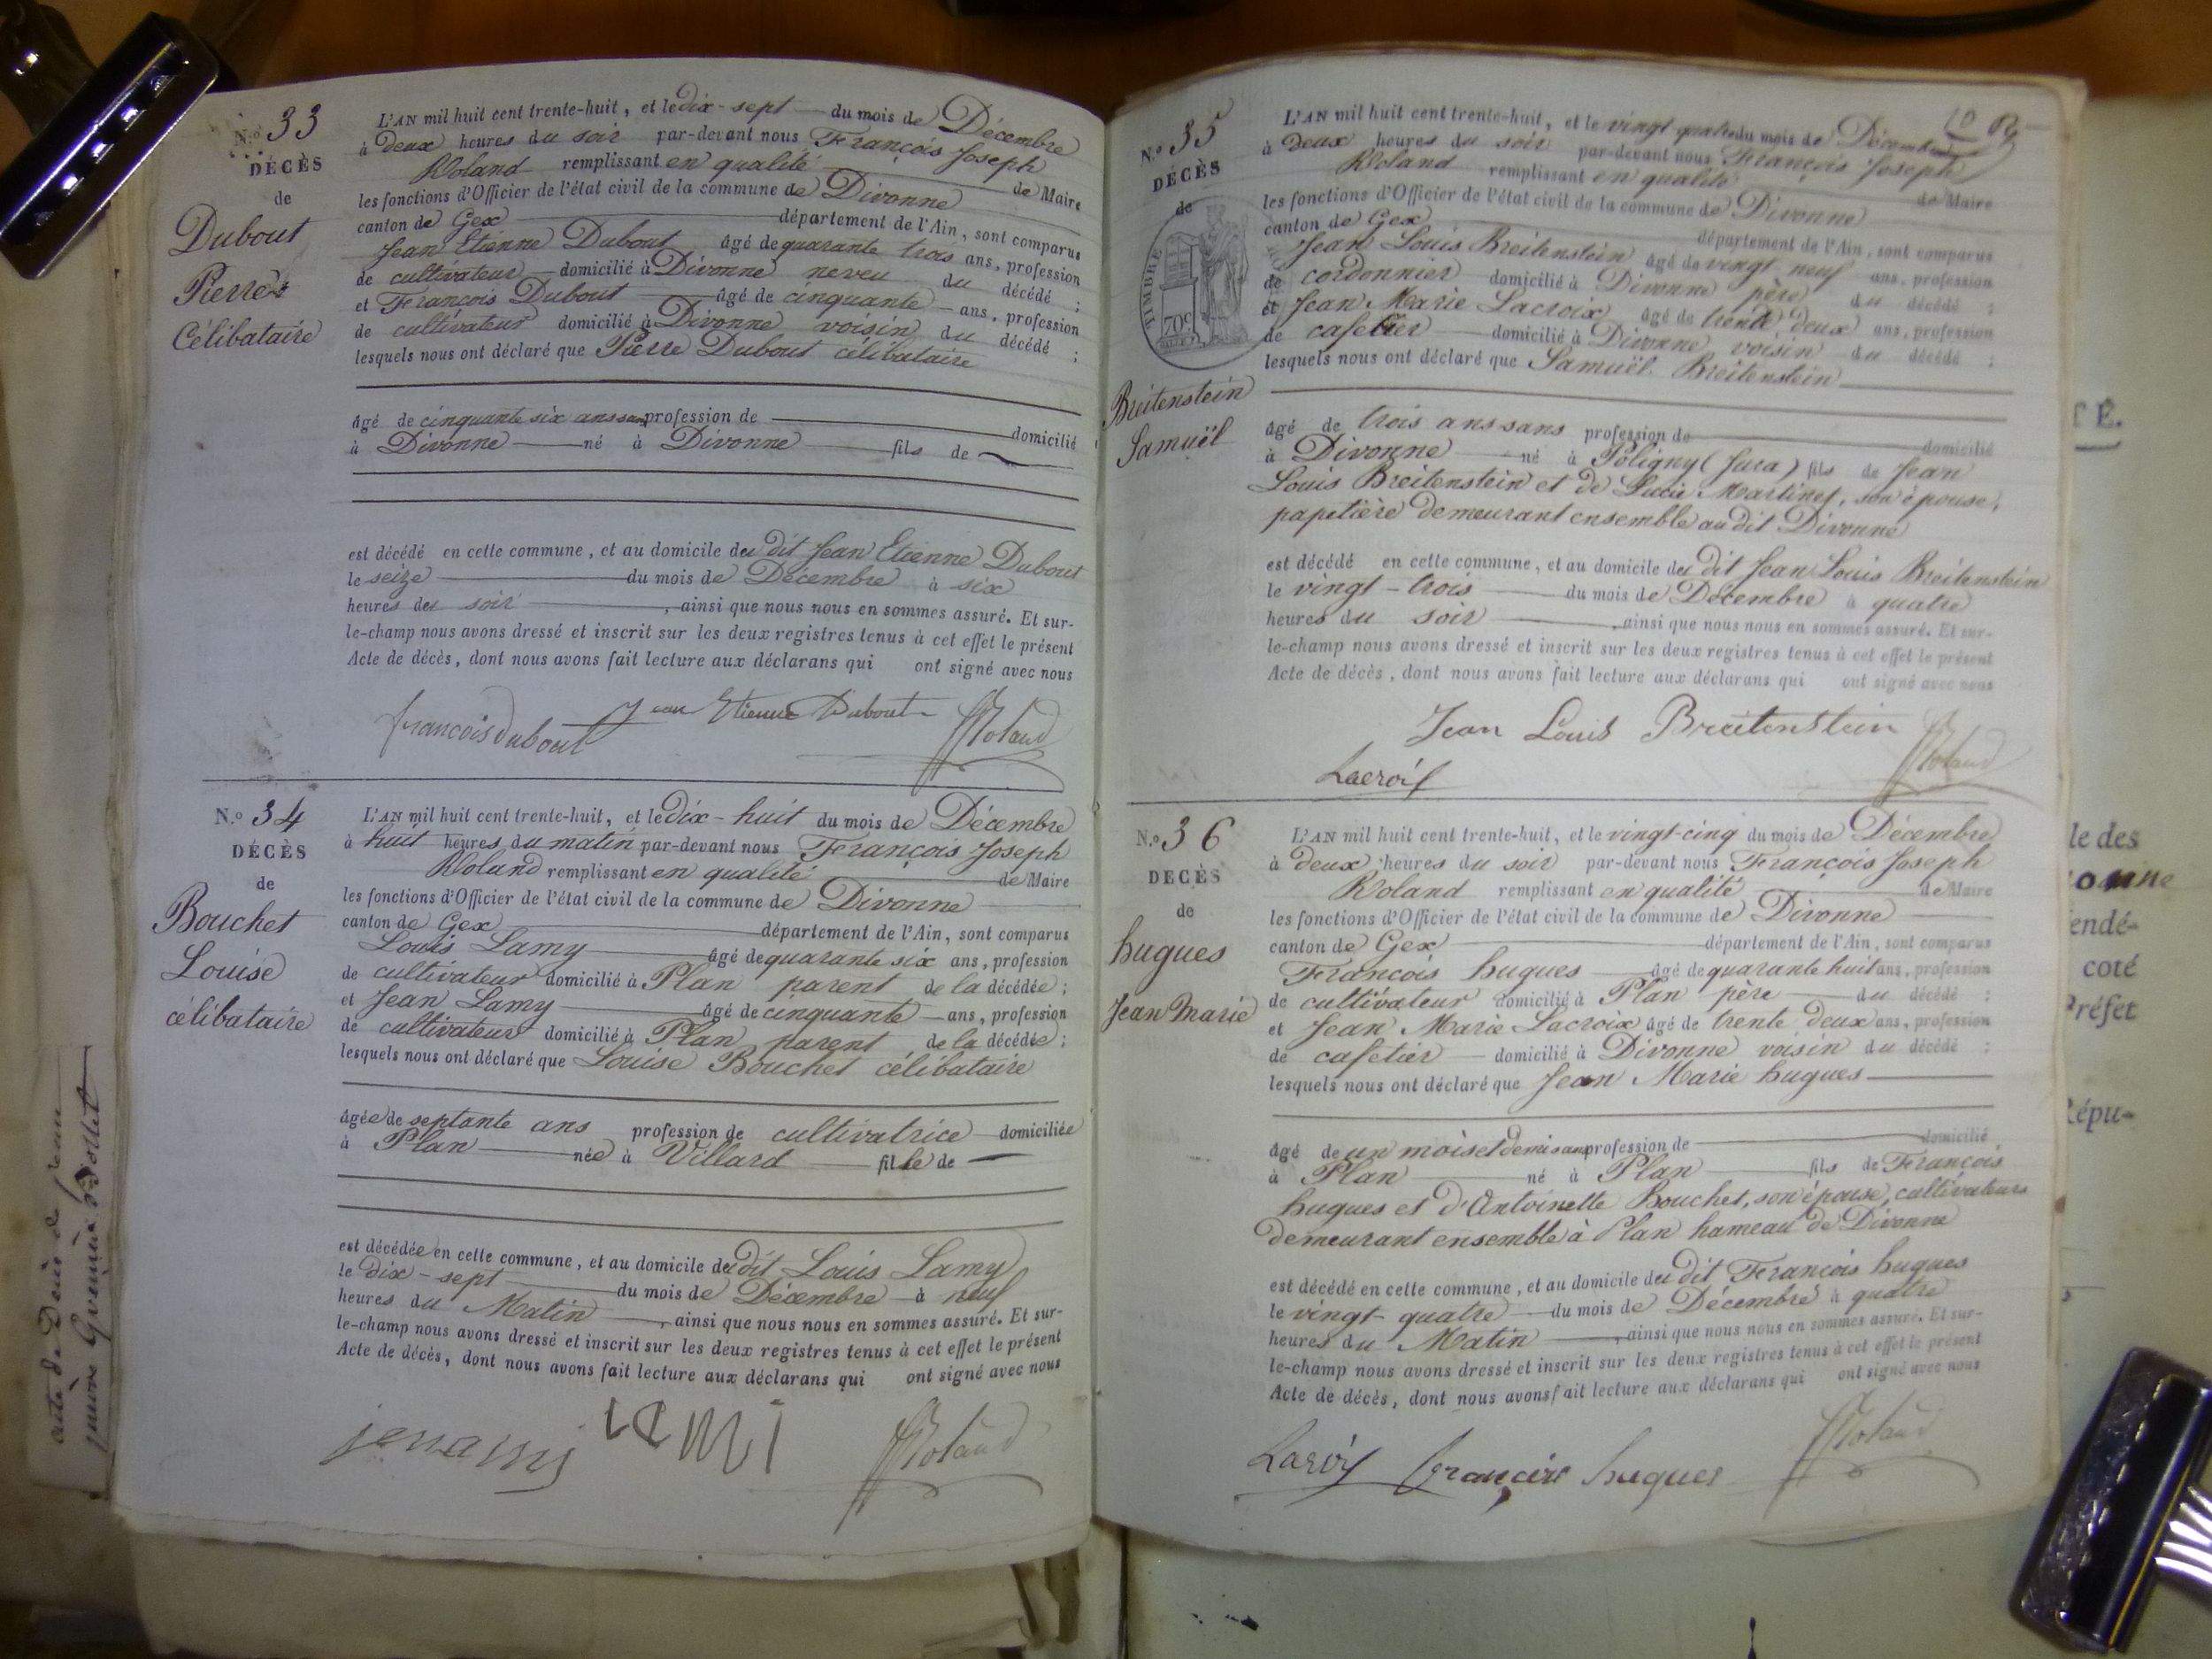 N.º 33
DÉCÈS
de
Dubout
Pierre
Célibataire
L'AN mil huit cent trente-huit, et le dix-sept du mois de Décembre
à deux heures du soir par-devant nous François Joseph
Roland remplissant en qualité de Maire
les fonctions d'Officier de l'état civil de la commune de Divonne
canton de Gex département de l'Ain, sont comparus
Jean Etienne Dubout âgé de quarante trois ans, profession
de cultivateur domicilié à Divonne neveu du décédé ;
et François Dubout âgé de cinquante ans, profession
de cultivateur domicilié à Divonne voisin du décédé ;
lesquels nous ont déclaré que Pierre Dubout célibataire
âgé de cinquante six ans sans profession de domicilié
à Divonne né à Divonne fils de
est décédé en cette commune, et au domicile du dit Jean Etienne Dubout
le seize du mois de Décembre à six
heures du soir, ainsi que nous nous en sommes assuré. Et sur-
le-champ nous avons dressé et inscrit sur les deux registres tenus à cet effet le présent
Acte de décès, dont nous avons fait lecture aux déclarans qui ont signé avec nous
françois dubout Jean Etienne Dubout Roland
N.º 34
DÉCÈS
de
Bouchet
Louise
célibataire
L'AN mil huit cent trente-huit, et le dix-huit du mois de Décembre
à huit heures du matin par-devant nous François Joseph
Roland remplissant en qualité de Maire
les fonctions d'Officier de l'état civil de la commune de Divonne
canton de Gex département de l'Ain, sont comparus
Louis Lamy âgé de quarante six ans, profession
de cultivateur domicilié à Plan parent de la décédée ;
et Jean Lamy âgé de cinquante ans, profession
de cultivateur domicilié à Plan parent de la décédée ;
lesquels nous ont déclaré que Louise Bouchet célibataire
âgée de septante ans profession de cultivatrice domiciliée
à Plan née à Villard fille de
est décédée en cette commune, et au domicile du dit Louis Lamy
le dix-sept du mois de Décembre à neuf
heures du Matin, ainsi que nous nous en sommes assuré. Et sur-
le-champ nous avons dressé et inscrit sur les deux registres tenus à cet effet le présent
Acte de décès, dont nous avons fait lecture aux déclarans qui ont signé avec nous
LAMI Roland
N.º 35
DÉCÈS
de
TIMBRE
70c
Breitenstein
Samuël
10
L'AN mil huit cent trente-huit, et le vingt quatre du mois de Décembre
à deux heures du soir par-devant nous François Joseph
Roland remplissant en qualité de Maire
les fonctions d'Officier de l'état civil de la commune de Divonne
canton de Gex département de l'Ain, sont comparus
Jean Louis Breitenstein âgé de vingt neuf ans, profession
de cordonnier domicilié à Divonne père du décédé ;
et Jean Marie Lacroix âgé de trente deux ans, profession
de cafetier domicilié à Divonne voisin du décédé ;
lesquels nous ont déclaré que Samuël Breitenstein
âgé de trois ans sans profession de domicilié
à Divonne né à Poligny (Jura) fils de Jean
Louis Breitenstein et de Lucie Martinet, son épouse,
papetière demeurant ensemble au dit Divonne
est décédé en cette commune, et au domicile du dit Jean Louis Breitenstein
le vingt-trois du mois de Décembre à quatre
heures du soir, ainsi que nous nous en sommes assuré. Et sur-
le-champ nous avons dressé et inscrit sur les deux registres tenus à cet effet le présent
Acte de décès, dont nous avons fait lecture aux déclarans qui ont signé avec nous
Jean Louis Breitenstein
Lacroix Roland
N.º 36
DECÈS
de
hugues
Jean Marie
L'AN mil huit cent trente-huit, et le vingt-cinq du mois de Décembre
à deux heures du soir par-devant nous François Joseph
Roland remplissant en qualité de Maire
les fonctions d'Officier de l'état civil de la commune de Divonne
canton de Gex département de l'Ain, sont comparus
François hugues âgé de quarante huit ans, profession
de cultivateur domicilié à Plan père du décédé ;
et Jean Marie Lacroix âgé de trente deux ans, profession
de cafetier domicilié à Divonne voisin du décédé ;
lesquels nous ont déclaré que Jean Marie hugues
âgé de un mois et demi sans profession de domicilié
à Plan né à Plan fils de François
hugues et d'Antoinette Bouchet, son épouse, cultivateurs
demeurant ensemble à Plan hameau de Divonne
est décédé en cette commune, et au domicile du dit François hugues
le vingt-quatre du mois de Décembre à quatre
heures du Matin, ainsi que nous nous en sommes assuré. Et sur-
le-champ nous avons dressé et inscrit sur les deux registres tenus à cet effet le présent
Acte de décès, dont nous avons fait lecture aux déclarans qui ont signé avec nous
françois hugues Roland
acte de Décès de
TÉ.
le des
onne
endé-
coté
Préfet
Répu-